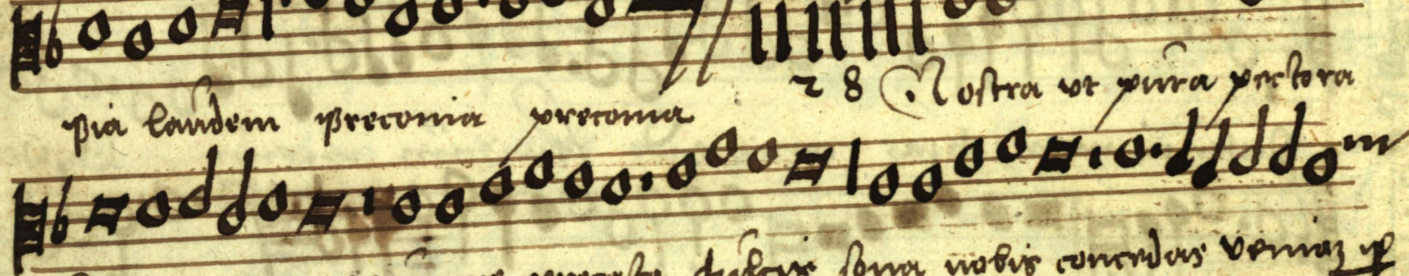 pia laudem preconia preconia 28 Nostra ut pura pectora
precata dulcis sona nobis concedas veniam